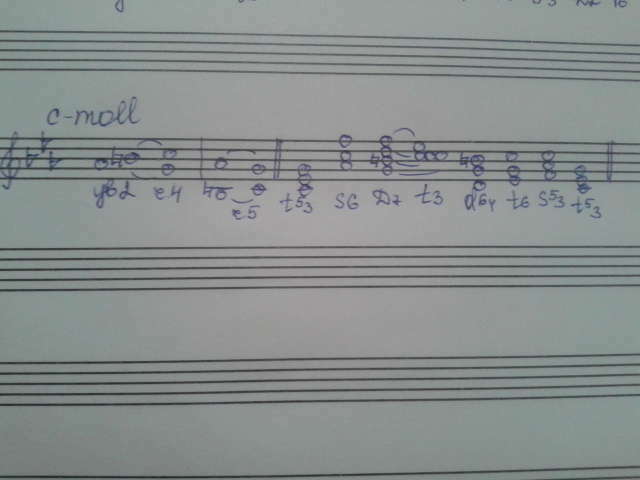 c-moll
ув2 ч4 ч5 t53 S6 D7 t3 d64 t6 S53 t53